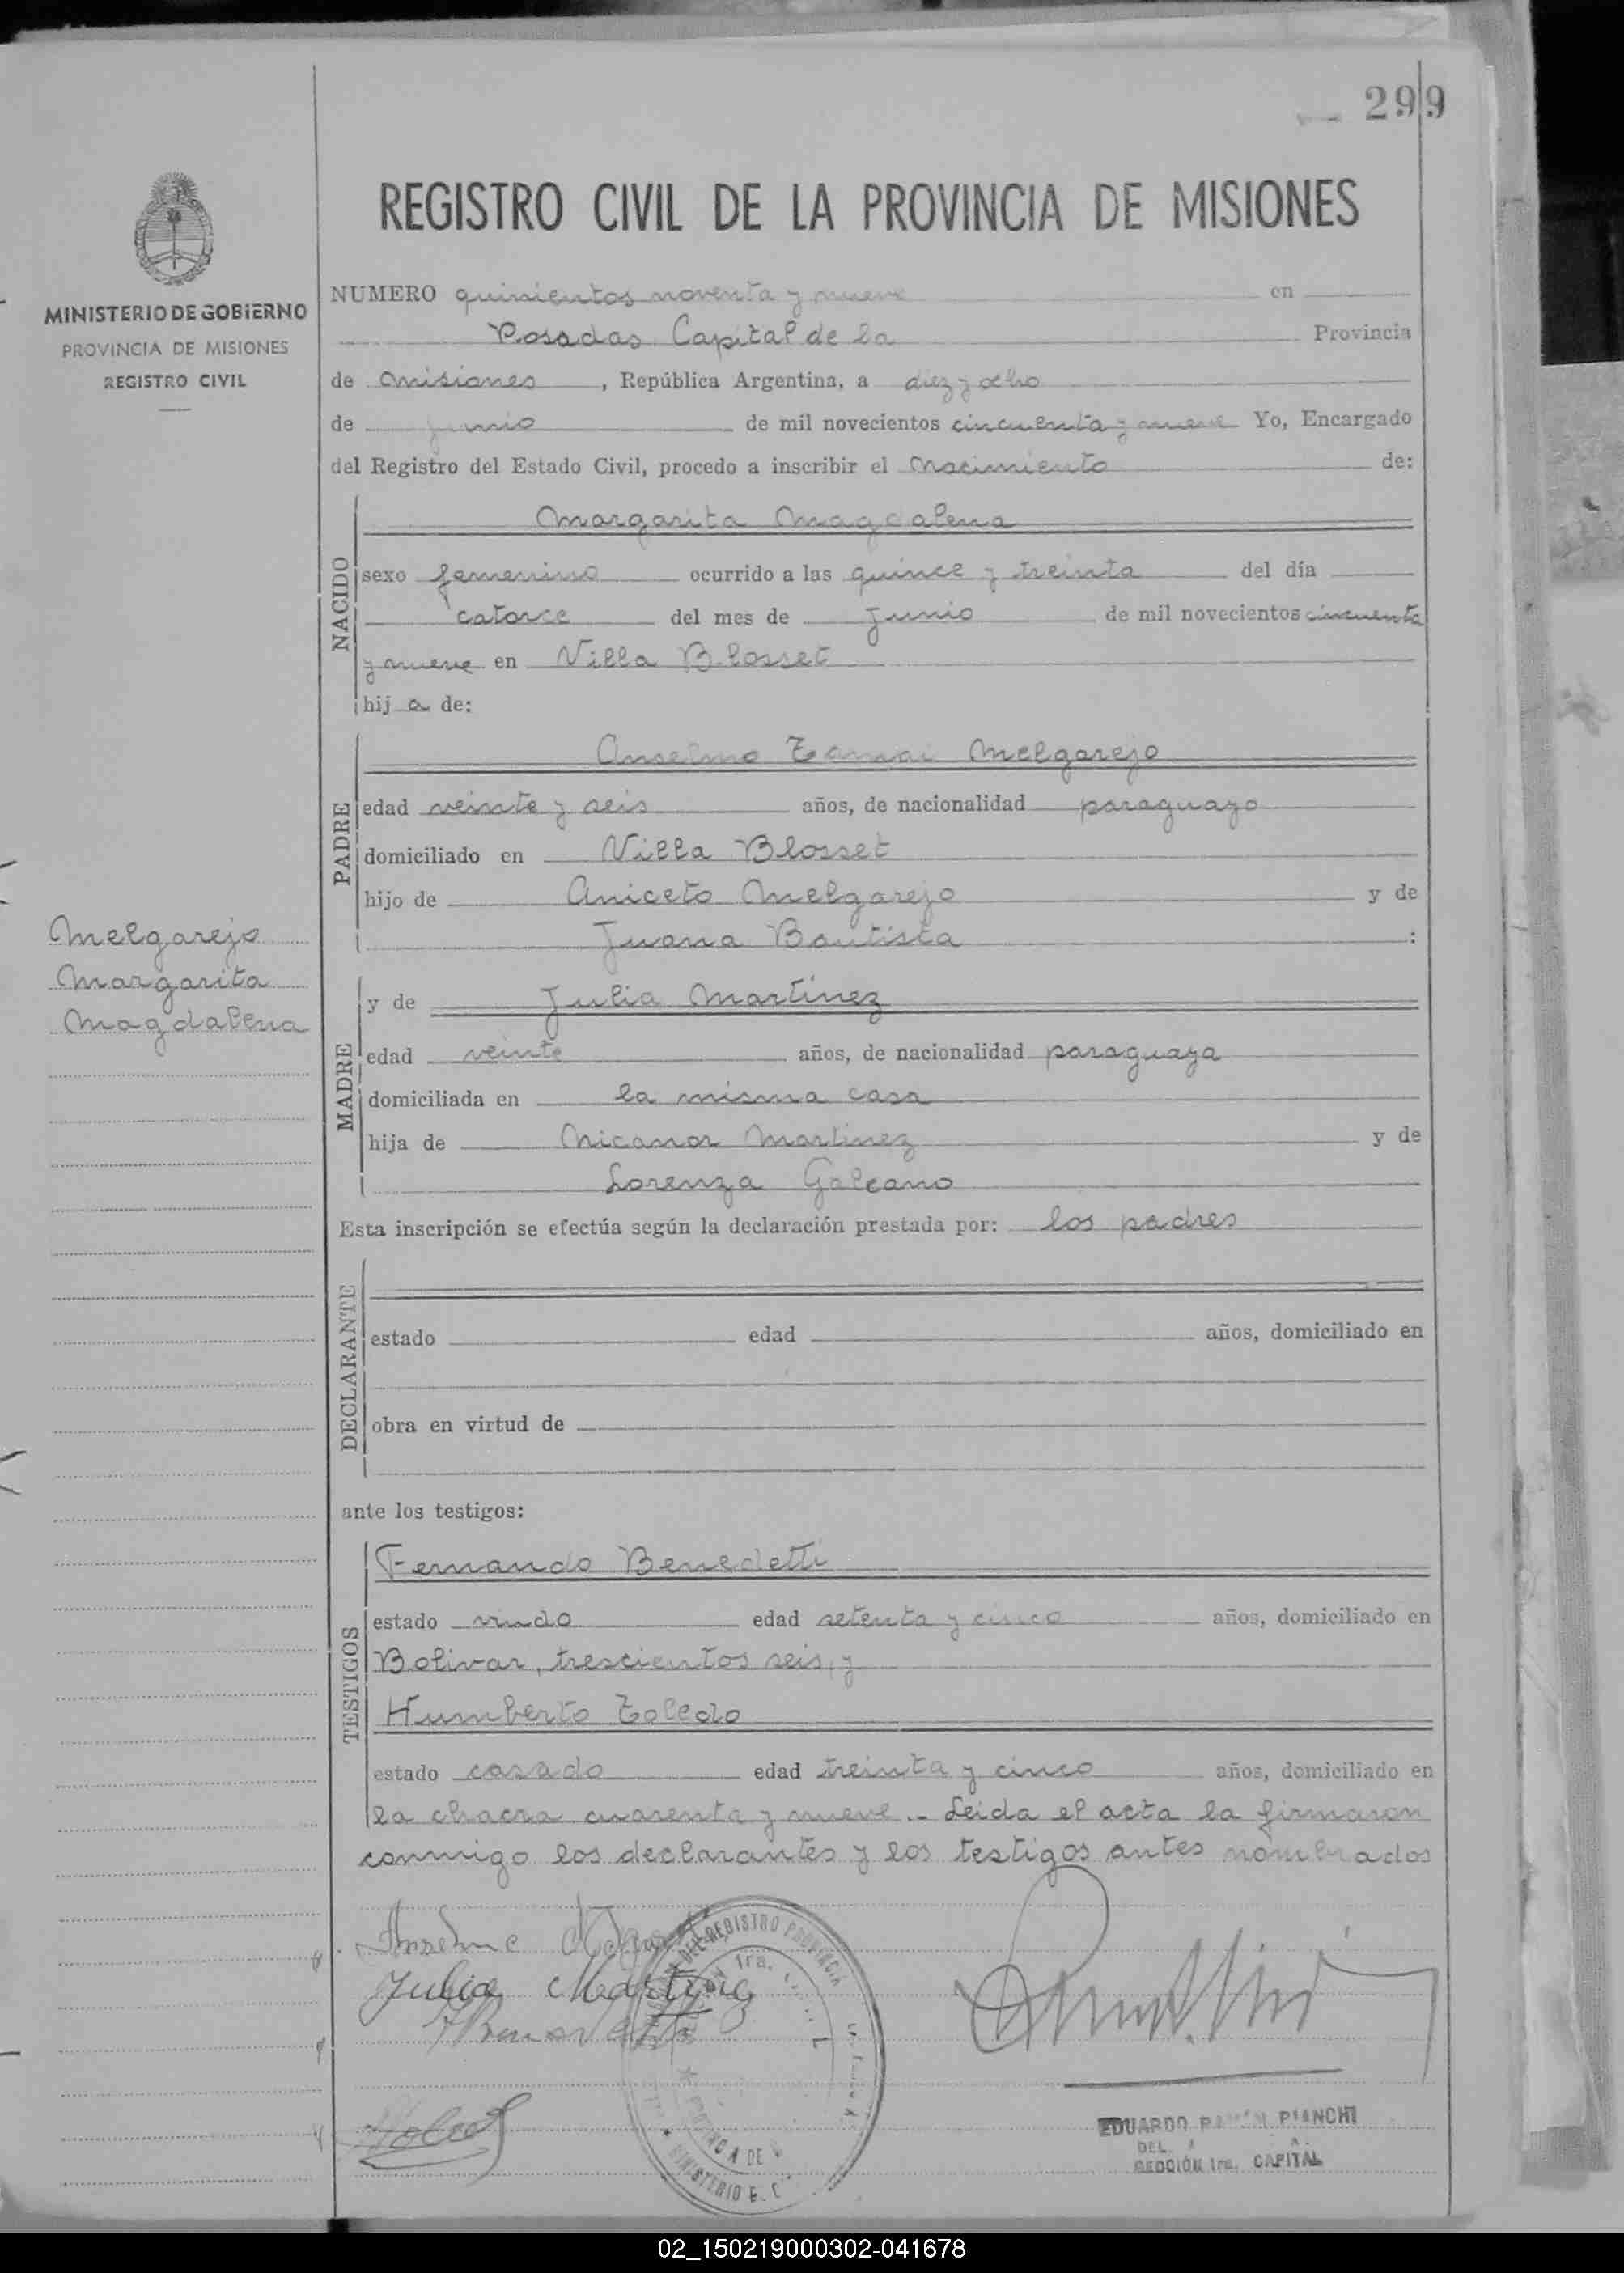 299
REGISTRO CIVIL DE LA PROVINCIA DE MISIONES
MINISTERIO DE GOBIERNO
PROVINCIA DE MISIONES
REGISTRO CIVIL
NUMERO quinientos noventa y nueve en
Posadas Capital de la Provincia
de Misiones, República Argentina, a diez y ocho
de junio de mil novecientos cincuenta y nueve Yo, Encargado
del Registro del Estado Civil, procedo a inscribir el Nacimiento de:
NACIDO
Margarita Magdalena
sexo femenino ocurrido a las quince y treinta del día
catorce del mes de Junio de mil novecientos cincuenta
y nueve en Villa Blosset
hij a de:
PADRE
Anselmo Melgarejo
edad veinte y seis años, de nacionalidad paraguayo
domiciliado en Villa Blosset
hijo de Aniceto Melgarejo y de
Juana Bautista :
Melgarejo
Margarita
Magdalena
MADRE
y de Julia Martinez
edad veinte años, de nacionalidad paraguaya
domiciliada en la misma casa
hija de Nicanor Martinez y de
Lorenza Galeano
Esta inscripción se efectúa según la declaración prestada por: los padres
DECLARANTE
estado edad años, domiciliado en
obra en virtud de
ante los testigos:
TESTIGOS
Fernando Benedetti
estado viudo edad setenta y cinco años, domiciliado en
Bolivar, trescientos seis, y
Humberto Toledo
estado casado edad treinta y cinco años, domiciliado en
la chacra cuarenta y nueve.- Leida el acta la firmaron
conmigo los declarantes y los testigos antes nombrados
Anselmo
Julia Martinez
DEL REGISTRO PROVINCIA
1ra.
MINISTERIO
EDUARDO RAMÓN PIANCHI
SECCIÓN 1ra. CAPITAL
02_150219000302-041678